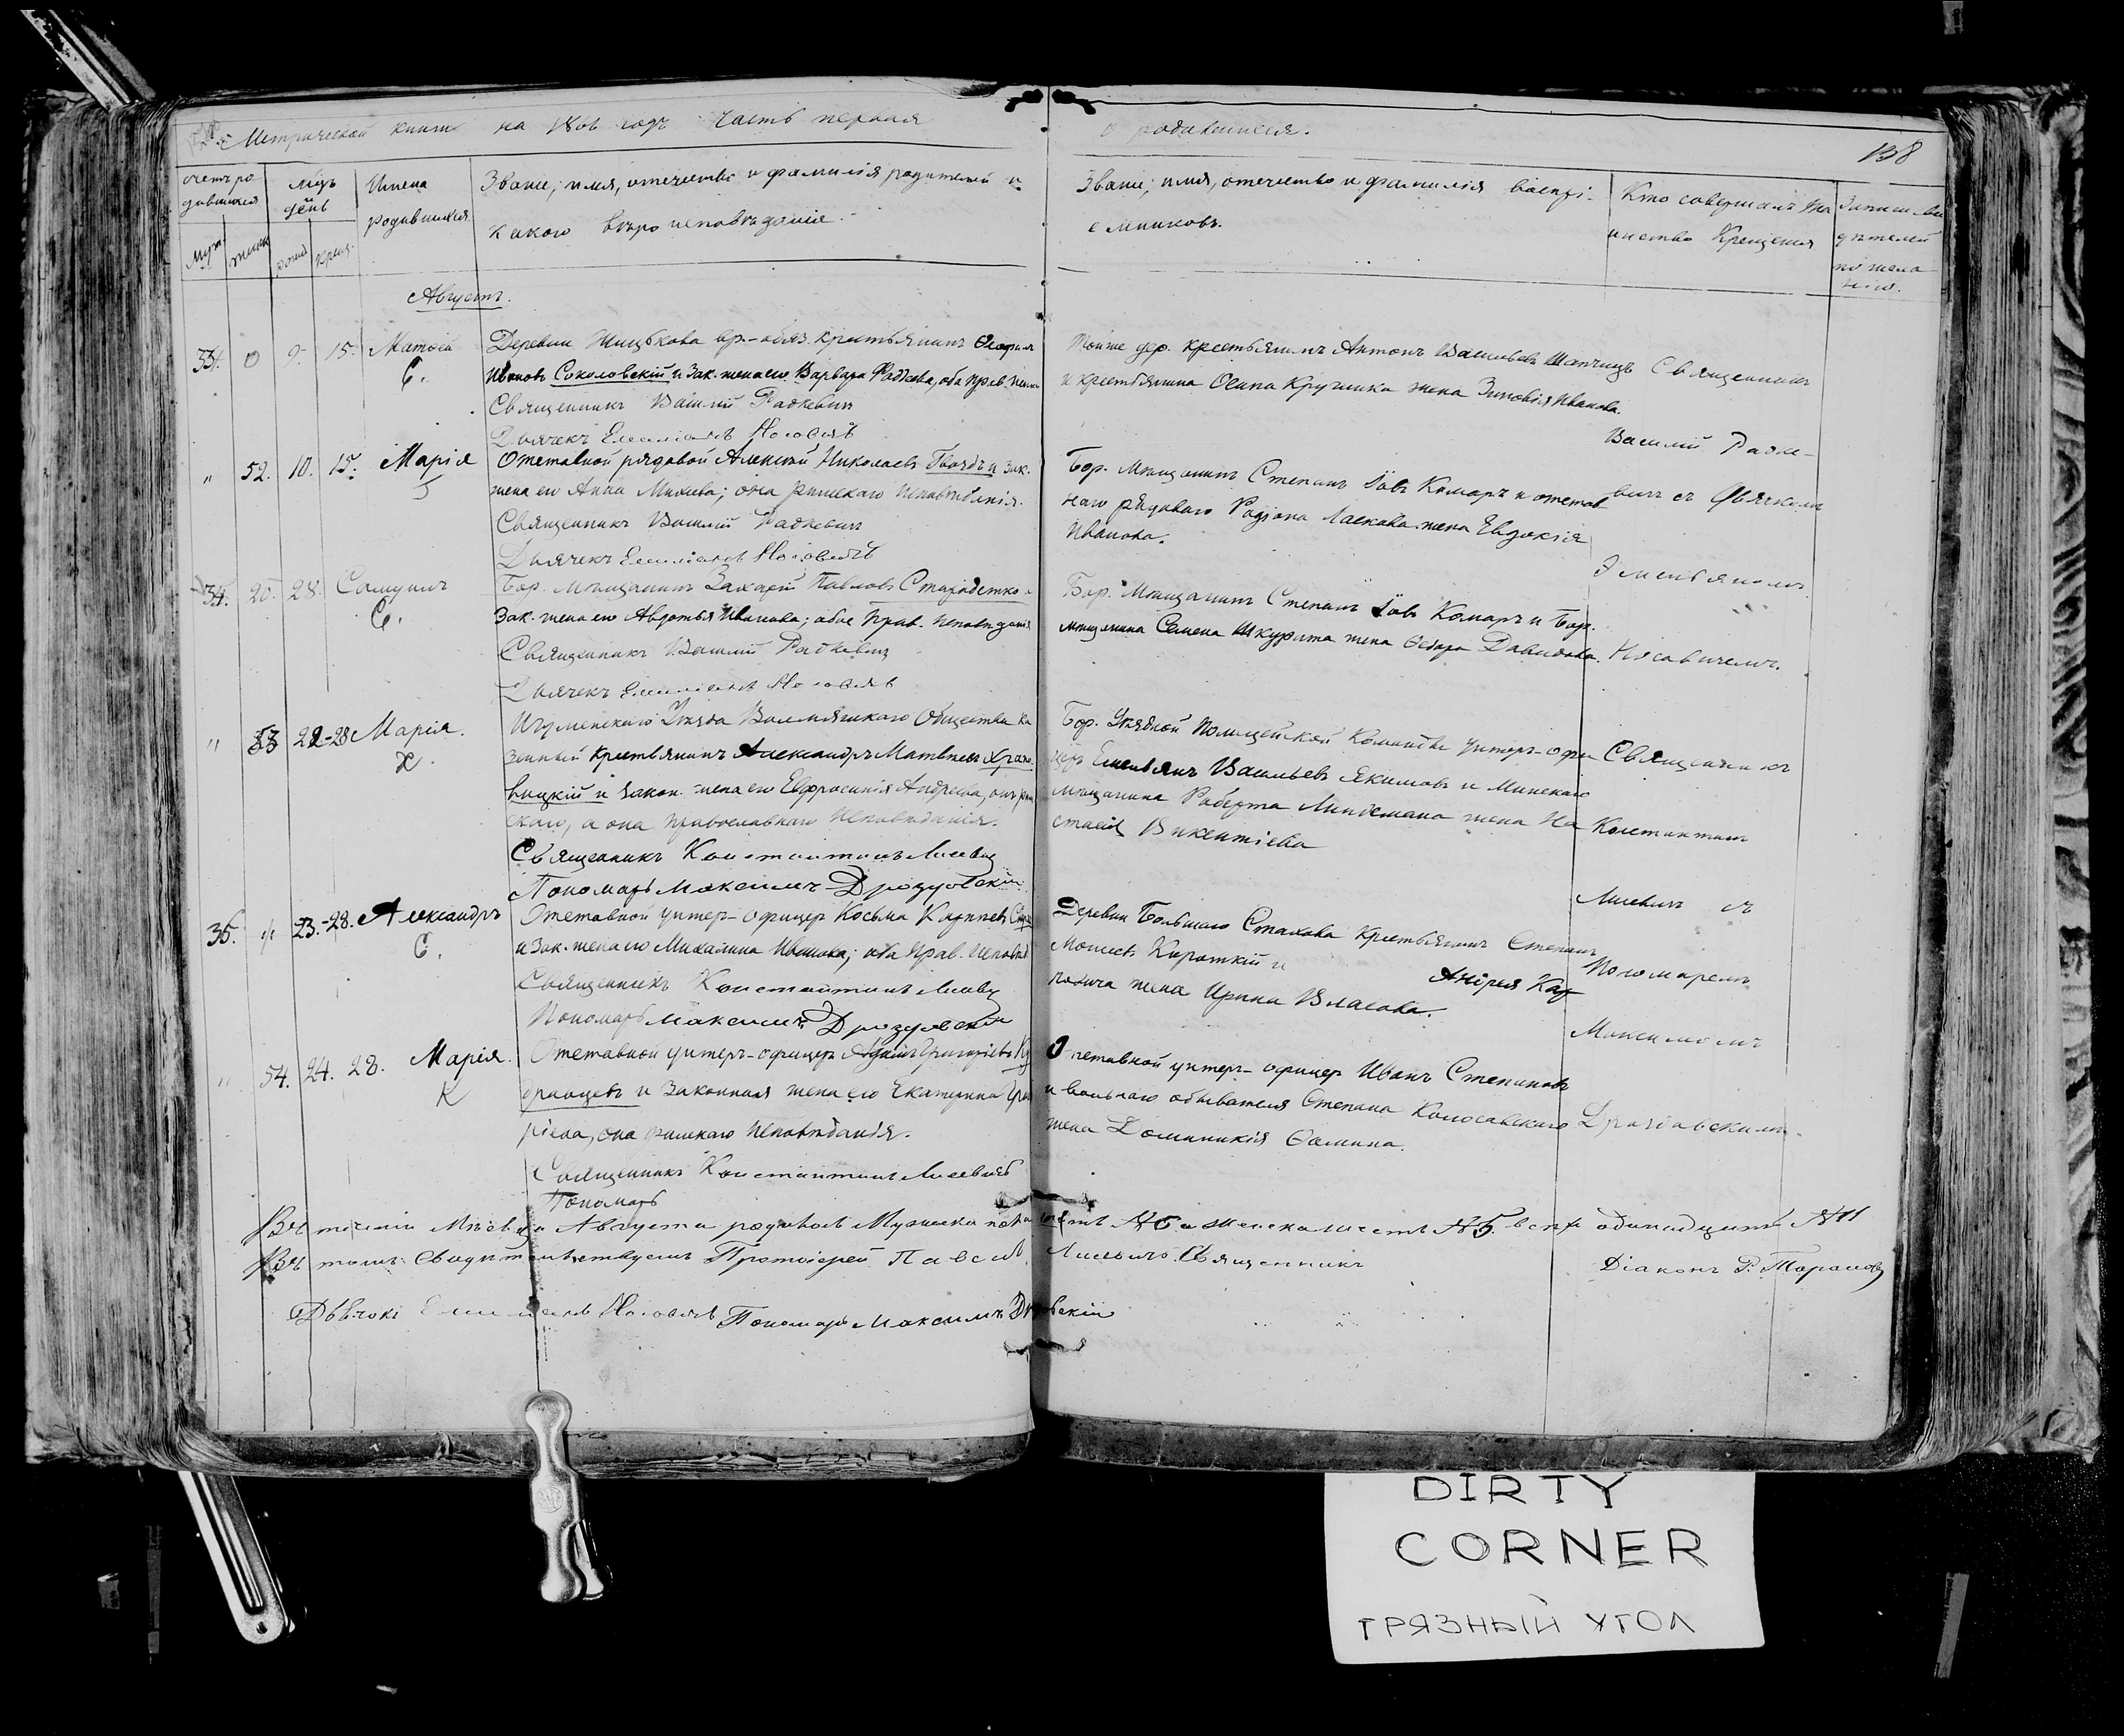 Метрической книги на годъ часть первая
о родившихся.
138
счетъ ро
дившихся
мѣсъ
день
Имена
родившихся
Званіе, имя, отечество и фамилія родителей и
какого вѣроисповѣданія.
Званіе, имя, отечество и фамилія воспрі-
емниковъ.
Кто совершалъ та
инство Крещенія
дѣтелей
по жела
нію.
Муж. женск рожд крещ.
Августъ.
33. 0 9. 15. Матѳей
С.
Деревни вр.-обяз. крестьянинъ
Ивановъ Соколовскій и Зак. жена его Варвара, оба прав.
Священникъ Василій Радкевичъ
Дьячекъ Емиліанъ Носовичъ
Тойже дер. крестьянинъ Антонъ Васильевъ
и крестьянина Осипа жена Зиновія Иванова.
Священникъ
Василій Радке-
вичъ съ Дьячкомъ
Эмельяномъ
Носовичемъ.
" 52. 10. 15. Марія
Отставной рядовой Алексѣй Николаевъ Гвоздь и Зак.
жена его Анна; она римскаго исповѣданія.
Священникъ Василій Радкевичъ
Дьячекъ Емиліанъ Носовичъ
Бор. Мѣщанинъ Степанъ Іовъ Комаръ и отстав
наго рядоваго Родіона Ласкова жена Евдокія
Иванова.
34. 20. 28. Самуилъ
С.
Бор. мѣщанинъ Захарій Павловъ
Зак. жена его Авдотья Иванова; обое Прав. Исповѣданія
Священникъ Василій Радкевичъ
Дьячекъ Емиліанъ Носовичъ
Бор. Мѣщанинъ Степанъ Іовъ Комаръ и Бор.
мѣщанина Семена Шкурата жена Давидова.
" 53 22-28 Марія.
Х.
Игуменскаго Уѣзда Общества ка
зенный Крестьянинъ Александръ Матвѣевъ Храпо
вицкій и закон. жена его Евфросинія Андреева, онъ рим
скаго, а она православнаго Исповѣданія.
Священникъ Константинъ Лисевичъ
Пономарь Максимъ Дроздовскій
Бор. Уѣздной Полицейской Команды унтеръ-офи
церъ Емельянъ Васильевъ Якимовъ и Минскаго
мѣщанина Роберта Линдемана жена На
стасія Викентіева
Священникъ
Константинъ
Лисевичъ съ
Пономаремъ
Максимомъ
Дроздовскимъ.
35. " 23.-28. Александръ
С.
Отставной унтеръ-офицеръ Косьма
и Зак. жена его Михалина Иванова; оба Прав. Исповѣд
Священникъ Константинъ Лисевичъ
Пономарь Максимъ Дроздовскій
Деревни Большаго Стахова Крестьянинъ Степанъ
Моисеевъ Короткій и Андрея Кар
повича жена Ирина Власова.
" 54. 24. 28. Марія.
К
Отставной унтеръ-офицеръ Григорьевъ
и Законная жена его Екатерина
она римскаго Исповѣданія.
Священникъ Константинъ Лисевичъ
Пономарь
Отставной унтеръ-офицеръ Иванъ Степановъ
и вольнаго обывателя Степана Колосовскаго
жена Доминикія Ѳомина.
Въ теченіи Мѣсяца Августа родилось Мужеска пола шесть №6 а женска пять №5. всего одинадцать №11
Въ томъ Свидѣтельствуемъ Протоіерей Павелъ Лисевичъ Священникъ Діаконъ
Дьячокъ Емиліанъ Носовичъ Пономарь Максимъ Дроздовскій
DIRTY
CORNER
ГРЯЗНЫЙ УГОЛ